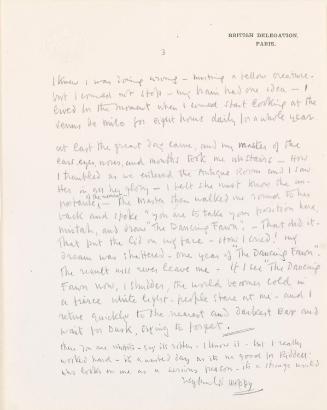 BRITISH DELEGATION,
PARIS.
3
I knew I was doing wrong – hurting a fellow creature
but I could not stop – my brain had one idea – I
lived for the moment when I could start looking at the
Venus de Milo for eight hours daily for a whole year
at last the great day came, and my master of the
ears, eyes, noses, and mouths took me upstairs – How
I trembled as we entered the Antique Room and I saw
Her in all her glory – I felt she must know the im-
portance of the moment – The Master then walked me round to her
back and spoke "you are to take your position here,
mistah, and draw "The Dancing Fawn". – That did it –
That put the lid on my face – How I cried! my
dream was shattered – one year of "The Dancing Fawn".
The result will never leave me – if I see "The Dancing
Fawn now, I shudder, the world becomes cold in
a fierce white light – people stare at me – and I
retire quickly to the nearest and darkest Bar and
wait for Dusk, trying to forget.
There you are – say its rotten – I know it – but I really
worked hard – it's a wasted day as its no good for Riddell
who looks on me as a serious person – it's a strange world